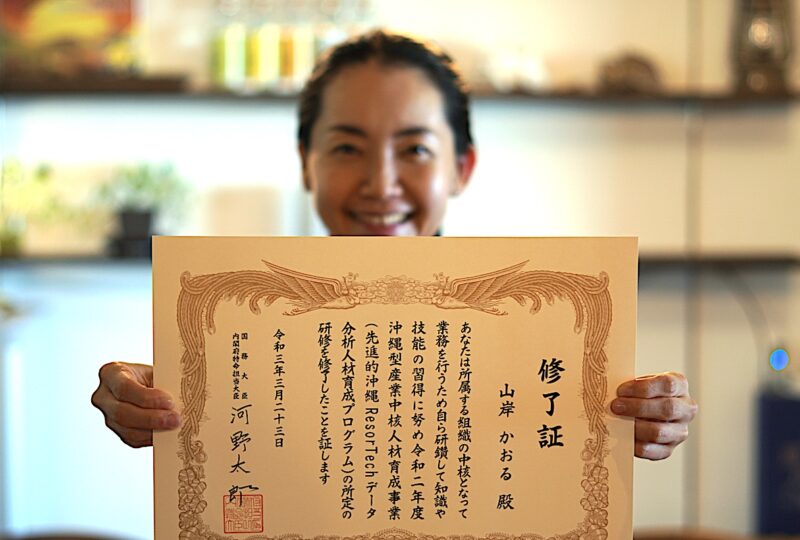 修了証
山岸 かおる 殿
あなたは所属する組織の中核となって
業務を行うため自ら研鑽して知識や
技能の習得に努め令和二年度
沖縄型産業中核人材育成事業
(先進的沖縄ResorTechデータ
分析人材育成プログラム)の所定の
研修を修了したことを証します
令和三年三月二十三日
国務大臣
内閣府特命担当大臣
河野太郎